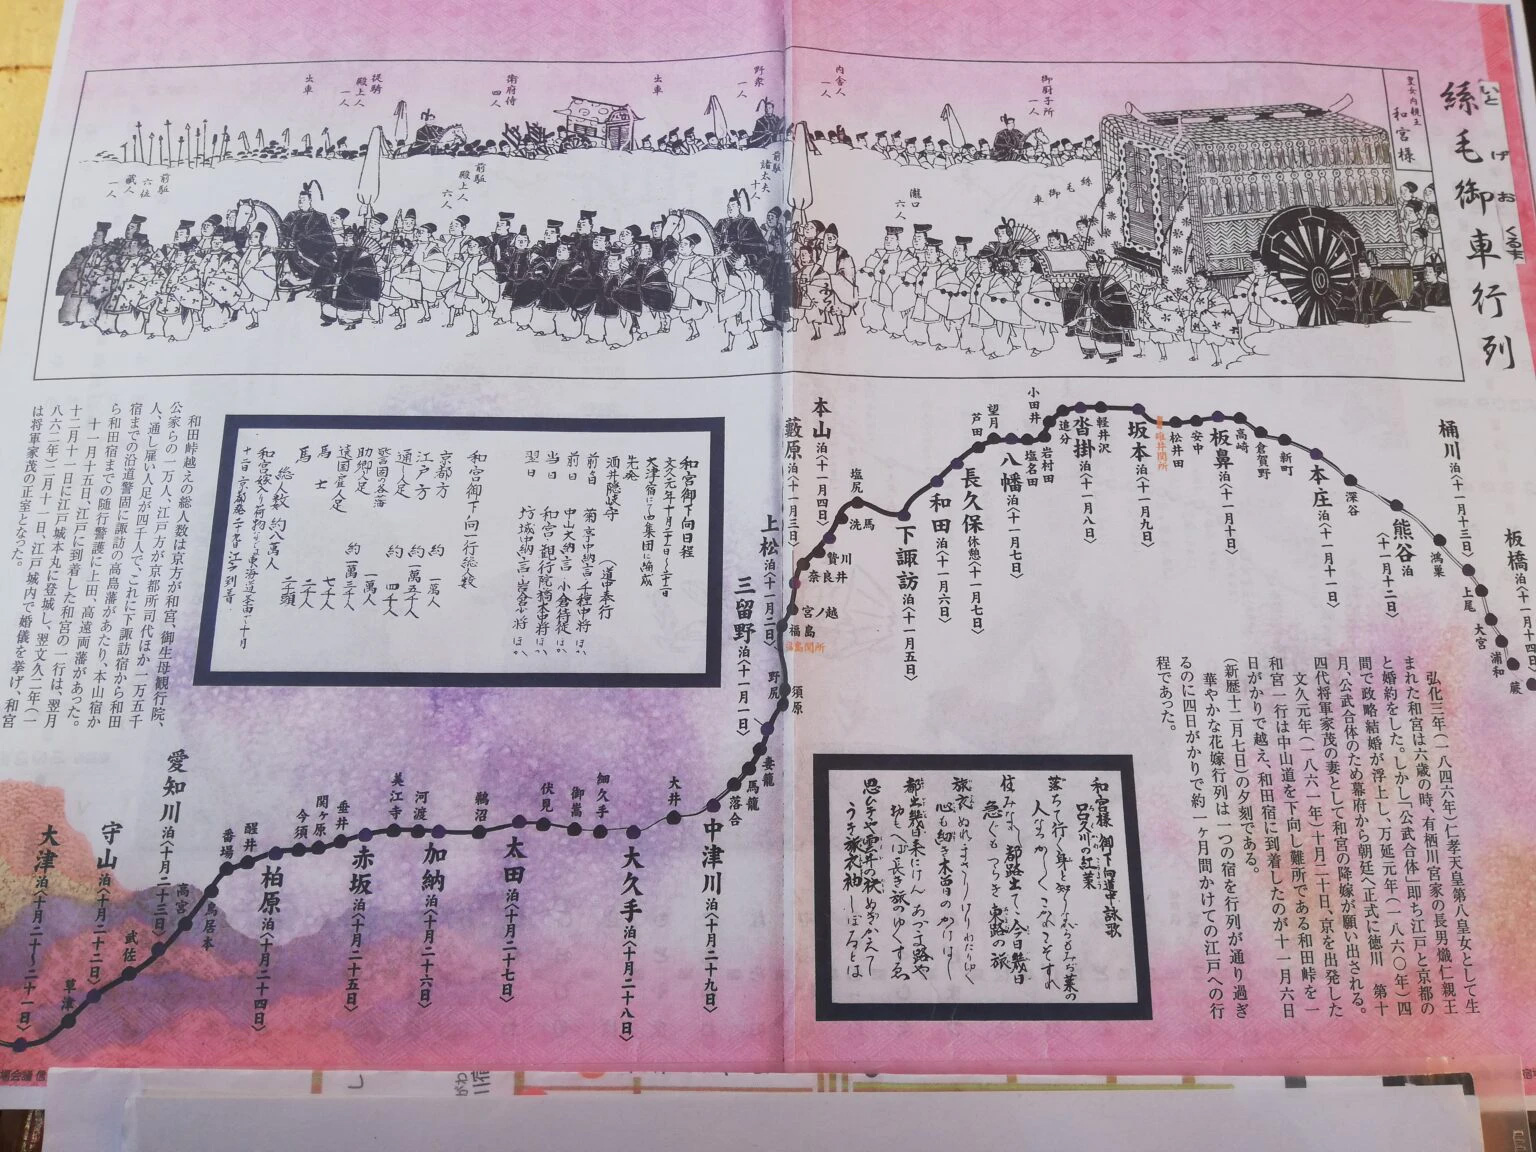 絲毛御車行列
いと げ お くるま
皇女内親王
和宮様
御厨子所
一人
内舎人
一人
野衆
一人
出車
衛府侍
四人
従騎
殿上人
一人
出車
絲毛御車
瀧口
六人
前駈
諸太夫
十人
前駈
殿上人
六人
前駈
六位
蔵人
一人
板橋泊(十一月十四日)
蕨
浦和
大宮
上尾
桶川泊(十一月十三日)
鴻巣
熊谷泊(十一月十二日)
深谷
本庄泊(十一月十一日)
新町
倉賀野
高崎
板鼻泊(十一月十日)
安中
松井田
坂本泊(十一月九日)
軽井沢
沓掛泊(十一月八日)
追分
小田井
岩村田
塩名田
八幡泊(十一月七日)
望月
芦田
長久保休憩(十一月七日)
和田泊(十一月六日)
下諏訪泊(十一月五日)
塩尻
洗馬
本山泊(十一月四日)
贄川
奈良井
藪原泊(十一月三日)
宮ノ越
福島
福島関所
上松泊(十一月二日)
須原
野尻
三留野泊(十一月一日)
妻籠
馬籠
落合
中津川泊(十月二十九日)
大井
大久手泊(十月二十八日)
細久手
御嵩
伏見
太田泊(十月二十七日)
鵜沼
加納泊(十月二十六日)
河渡
美江寺
赤坂泊(十月二十五日)
垂井
関ヶ原
今須
柏原泊(十月二十四日)
醒井
番場
鳥居本
高宮
愛知川泊(十月二十三日)
武佐
守山泊(十月二十二日)
草津
大津泊(十月二十〜二十一日)
弘化三年(一八四六年)仁孝天皇第八皇女として生
まれた和宮は六歳の時、有栖川宮家の長男熾仁親王
と婚約をした。しかし「公武合体」即ち江戸と京都の
間で政略結婚が浮上し、万延元年(一八六〇年)四
月、公武合体のため幕府から朝廷へ正式に徳川 第十
四代将軍家茂の妻として和宮の降嫁が願い出される。
文久元年(一八六一年)十月二十日、京を出発した
和宮一行は中山道を下向し難所である和田峠を一
日がかりで越え、和田宿に到着したのが十一月六日
(新歴十二月七日)の夕刻である。
華やかな花嫁行列は一つの宿を行列が通り過ぎ
るのに四日がかりで約一ヶ月間かけての江戸への行
程であった。
和宮様 御下向道中詠歌
呂久川の紅葉
落ちて行く身と知りながらもみぢ葉の
人なつかしくこがれこそすれ
住みなれし都路出でて今日幾日
急ぐもつらき東路の旅
旅衣ぬれまさりけりわたりゆく
心も細き木曽のかけはし
都出て幾日来にけん あづま路や
思ひきや雲井の袂ぬぎかえて
うき旅衣袖しぼるとは
和宮御下向日程
文久元年十月二十日〜二十二日
大津宿にて四集団に編成
先発
酒井隠岐守 (道中奉行
前々日 菊亭中納言・千種中将 ほか
前日 中山大納言・小倉侍従 ほか
当日 和宮・観行院・橋本中将 ほか
翌日 坊城中納言・岩倉少将 ほか
和宮御下向一行総人数
京都方 約 一万人
江戸方 約一万五千人
通し人足 約 四千人
警固の各藩 一万人
助郷人足 約一万三千人
遠国雇人足 七千人
馬士 二千人
馬 二千頭
総人数 約八万人
和田峠越えの総人数は京方が和宮、御生母観行院、
公家らの一万人、江戸方が京都所司代ほか一万五千
人、通し雇い人足が四千人で、これに下諏訪宿から和田
宿までの沿道警固に諏訪の高島藩があたり、本山宿か
ら和田宿までの随行警護に上田、高遠両藩があった。
十一月十五日、江戸に到着した和宮の一行は、翌月
十二月十一日に江戸城本丸に登城し、翌文久二年(一
八六二年)二月十一日、江戸城内で婚儀を挙げ、和宮
は将軍家茂の正室となった。